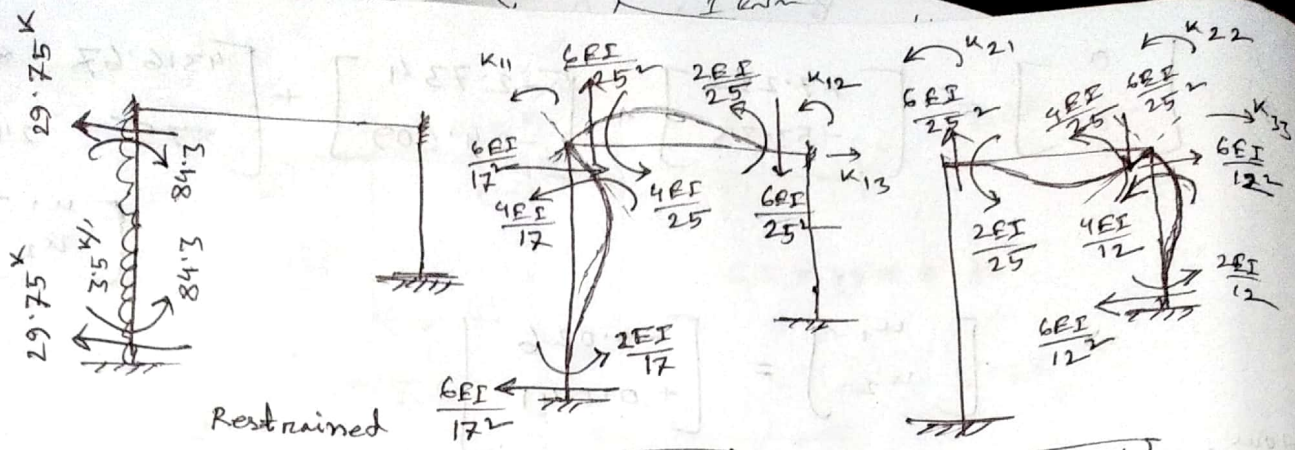 29.75 K
84.3
3.5 K/,
84.3
29.75 K
Restrained
K11
6EI/25²
2EI/25
K12
6EI/17²
4EI/17
4EI/25
6EI/25²
K13
2EI/17
6EI/17²
K21
K22
6EI/25²
4EI/25
6EI/25²
K33
6EI/12²
2EI/25
4EI/12
2EI/12
6EI/12²